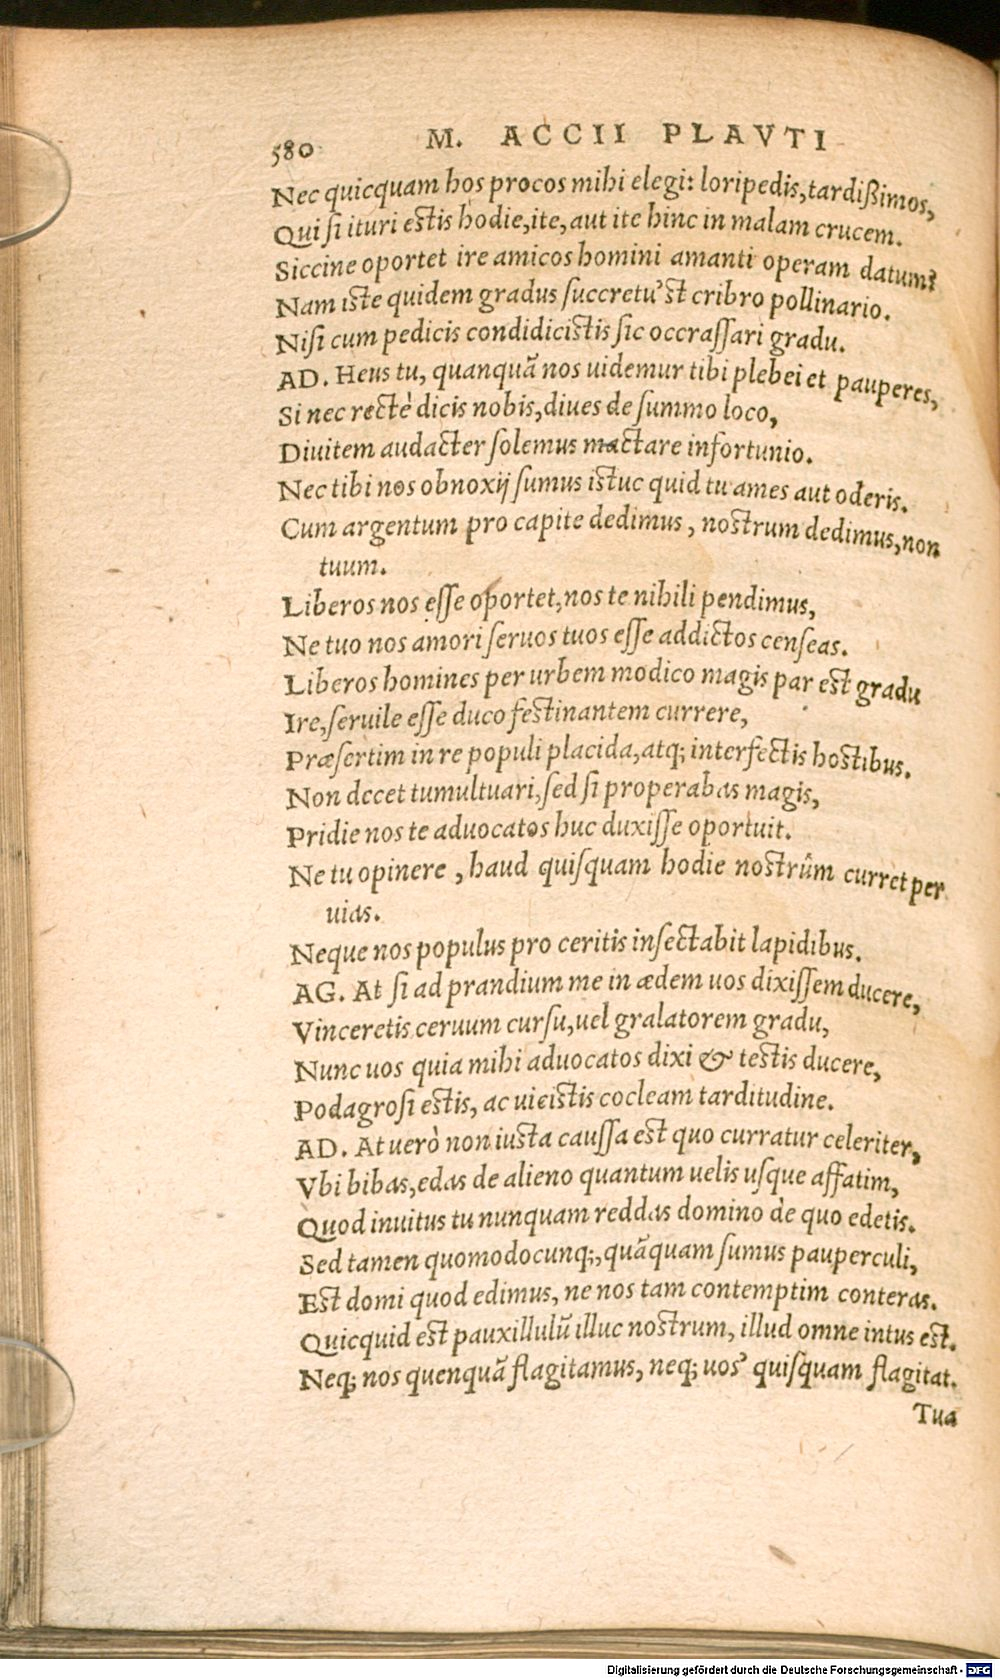 580 M. ACCII PLAVTI
Nec quicquam hos procos mihi elegi: loripedis, tardißimos,
Qui si ituri estis hodie, ite, aut ite hinc in malam crucem.
Siccine oportet ire amicos homini amanti operam datum?
Nam iste quidem gradus succretu'st cribro pollinario.
Nisi cum pedicis condidicistis sic occrassari gradu.
AD. Heus tu, quanquã nos uidemur tibi plebei et pauperes,
Si nec rectè dicis nobis, diues de summo loco,
Diuitem audacter solemus mactare infortunio.
Nec tibi nos obnoxij sumus istuc quid tu ames aut oderis.
Cum argentum pro capite dedimus, nostrum dedimus, non
tuum.
Liberos nos esse oportet, nos te nihili pendimus,
Ne tuo nos amori seruos tuos esse addictos censeas.
Liberos homines per urbem modico magis par est gradu
Ire, seruile esse duco festinantem currere,
Præsertim in re populi placida, atq; interfectis hostibus.
Non decet tumultuari, sed si properabas magis,
Pridie nos te aduocatos huc duxisse oportuit.
Ne tu opinere, haud quisquam hodie nostrûm curret per
uias.
Neque nos populus pro ceritis insectabit lapidibus.
AG. At si ad prandium me in ædem uos dixissem ducere,
Vinceretis ceruum cursu, uel gralatorem gradu,
Nunc uos quia mihi aduocatos dixi & testis ducere,
Podagrosi estis, ac uicistis cocleam tarditudine.
AD. At uerò non iusta caussa est quo curratur celeriter,
Vbi bibas, edas de alieno quantum uelis usque affatim,
Quod inuitus tu nunquam reddas domino de quo edetis.
Sed tamen quomodocunq;, quãquam sumus pauperculi,
Est domi quod edimus, ne nos tam contemptim conteras.
Quicquid est pauxillulũ illuc nostrum, illud omne intus est.
Neq; nos quenquã flagitamus, neq; uos quisquam flagitat.
Tua
Digitalisierung gefördert durch die Deutsche Forschungsgemeinschaft - DFG